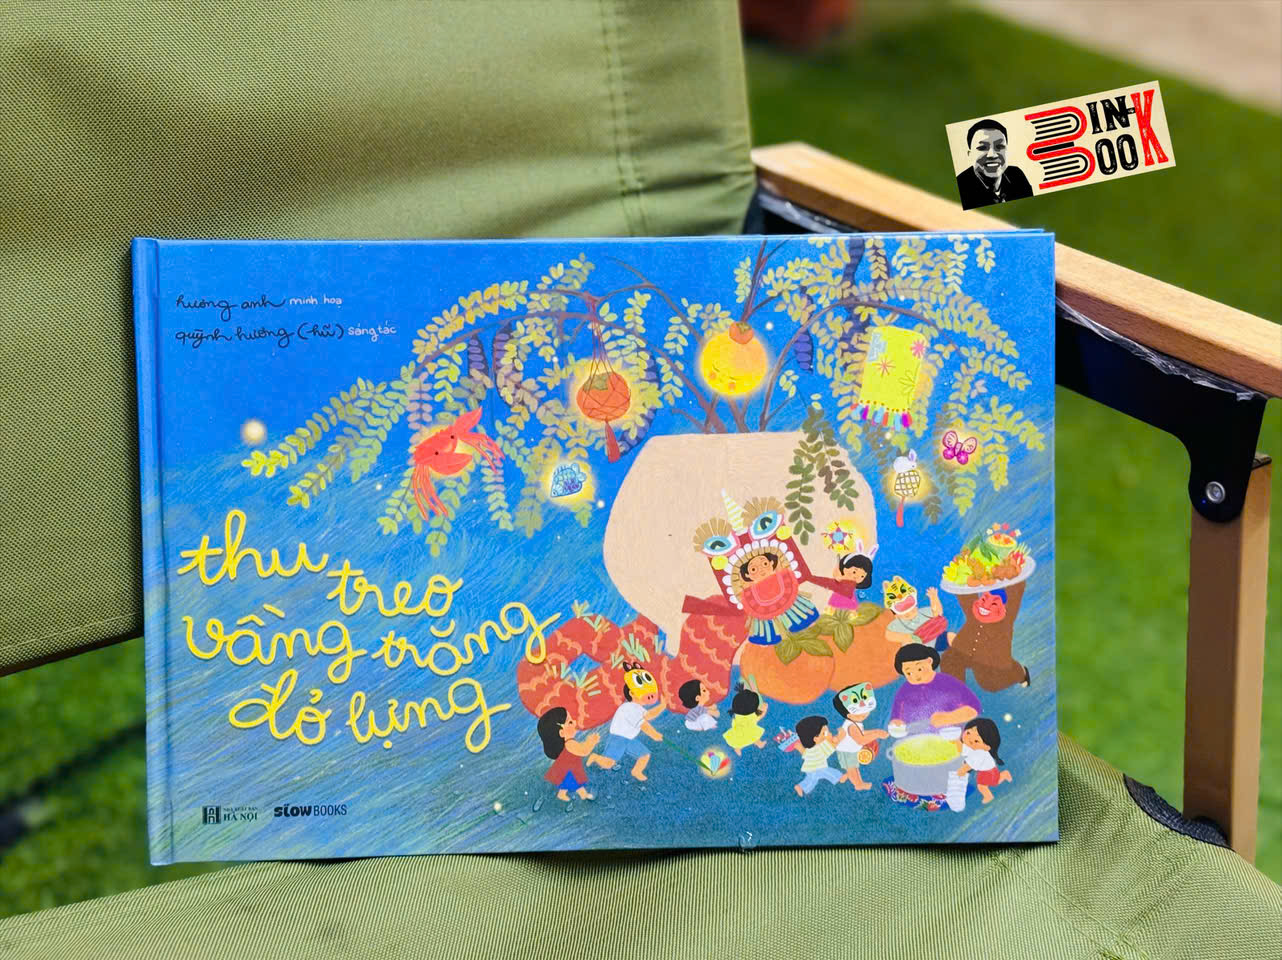 hương anh minh hoạ
quỳnh hương (-hũ) sáng tác
thu treo
vầng trăng
đỏ lựng
NHÀ XUẤT BẢN
HÀ NỘI
SLOWBOOKS
BIN-
BOOK